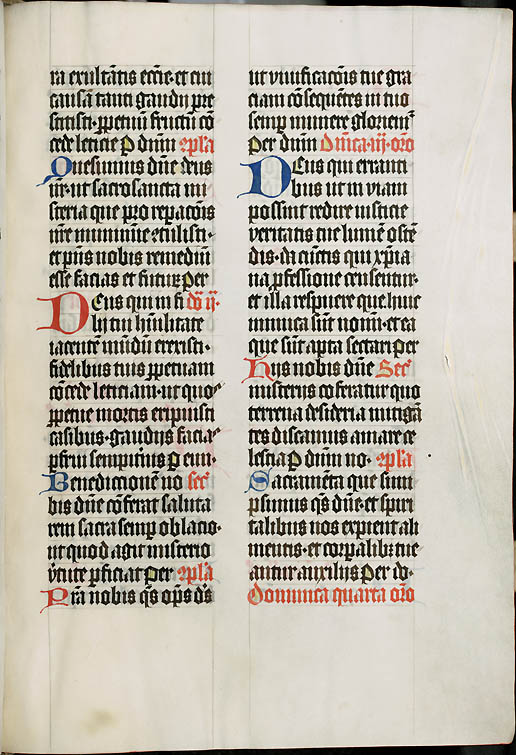 ra exultātis eccīe·et cui
causā tanti gaudij pre
stitisti·ꝑpetuū fructū cō
cede leticie P dn̄m ꝯpl̄a
Quesumus dn̄e deus
nr̄·ut sacrosancta mi
steria que pro repacōis
nr̄e munimīe ꝯtulisti·
et pn̄s nobis remediū
esse facias et futuꝝ per
Deus qui in fi dō ij·
lij tui hūilitate
iacentē mūdū erexisti·
fidelibus tuis ꝑpetuam
cōcede leticiam·ut quos
ꝑpetue mortis eripuisti
casibus·gaudijs facias
ꝑfrui sempit̄nis P eun·
Benedictionē no secr̄
bis dn̄e cōferat saluta
rem sacra semp̄ oblacio·
ut quod agit misterio
v̄tute ꝑficiat per ꝯpl̄a
Pr̄a nobis qs̄ ops̄ ds̄
ut viuificacōis tue gra
ciam cōsequētes in tuo
semp̄ munere gloriem̄
Per dn̄m Dn̄ica·iij·oro
Deus qui erranti
bus ut in viam
possint redire iusticie
veritatis tue lumē ostē
dis·da cūctis qui xp̄ia
na ꝓfessione censentur·
et illa respuere que huic
inimica sūt nomī·et ea
que sūt apta sectari per
Hijs nobis dn̄e Secr̄
misterijs cōferatur quo
terrena desideria mitigā
tes discamus amare ce
lestia P dn̄m no· ꝯpl̄a
Sacramēta que sum
psimus qs̄ dn̄e·et spiri
talibus nos expient ali
mentis·et corꝑalibꝫ tue
antur auxilijs per do·
Dominica quarta oro